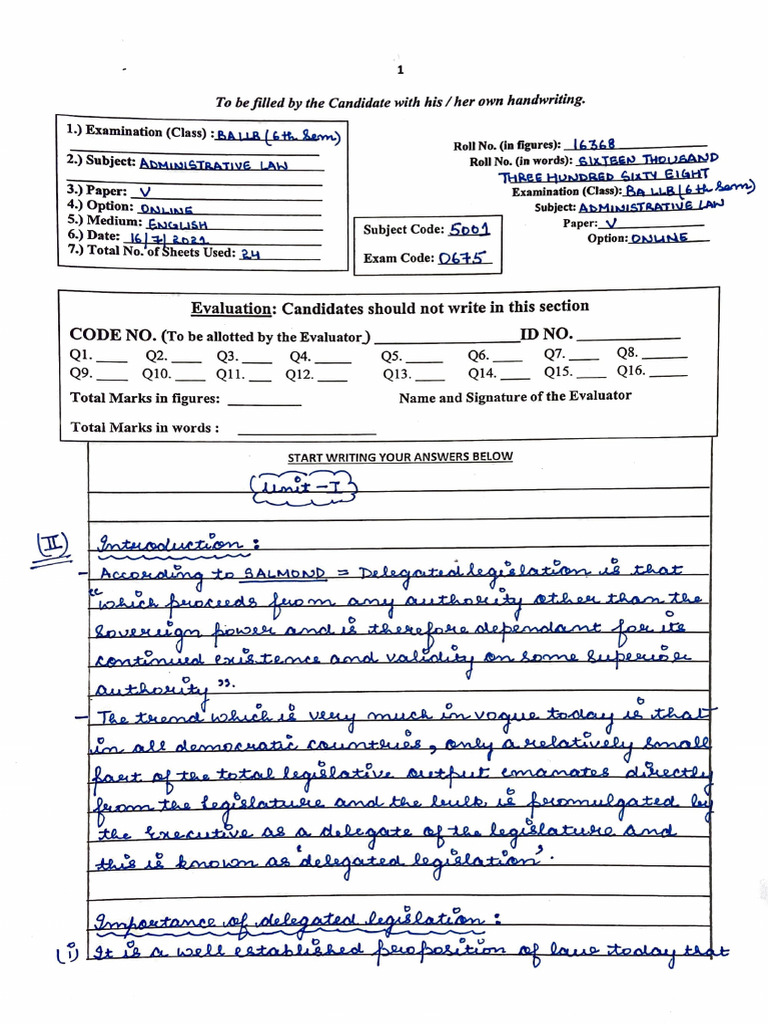 1
To be filled by the Candidate with his / her own handwriting.
1.) Examination (Class) : BALLB (6th Sem)
2.) Subject: ADMINISTRATIVE LAW
3.) Paper: V
4.) Option: ONLINE
5.) Medium: ENGLISH
6.) Date: 16/7/2021
7.) Total No. of Sheets Used: 24
Roll No. (in figures): 16368
Roll No. (in words): SIXTEEN THOUSAND
THREE HUNDRED SIXTY EIGHT
Examination (Class): BA LLB (6th Sem)
Subject: ADMINISTRATIVE LAW
Paper: V
Option: ONLINE
Subject Code: 5001
Exam Code: 0675
Evaluation: Candidates should not write in this section
CODE NO. (To be allotted by the Evaluator) ____ ID NO. ____
Q1. ____ Q2. ____ Q3. ____ Q4. ____ Q5. ____ Q6. ____ Q7. ____ Q8. ____
Q9. ____ Q10. ____ Q11. ____ Q12. ____ Q13. ____ Q14. ____ Q15. ____ Q16. ____
Total Marks in figures: ____ Name and Signature of the Evaluator
Total Marks in words : ____
START WRITING YOUR ANSWERS BELOW
Unit - I
(II) Introduction :
- According to SALMOND = Delegated legislation is that
"which proceeds from any authority other than the
sovereign power and is therefore dependant for its
continued existence and validity on some superior
authority".
- The trend which is very much in vogue today is that
in all democratic countries, only a relatively small
part of the total legislative output emanates directly
from the legislature and the bulk is promulgated by
the executive as a delegate of the legislature and
this is known as 'delegated legislation'.
Importance of delegated legislation :
(i) It is a well established proposition of law today that